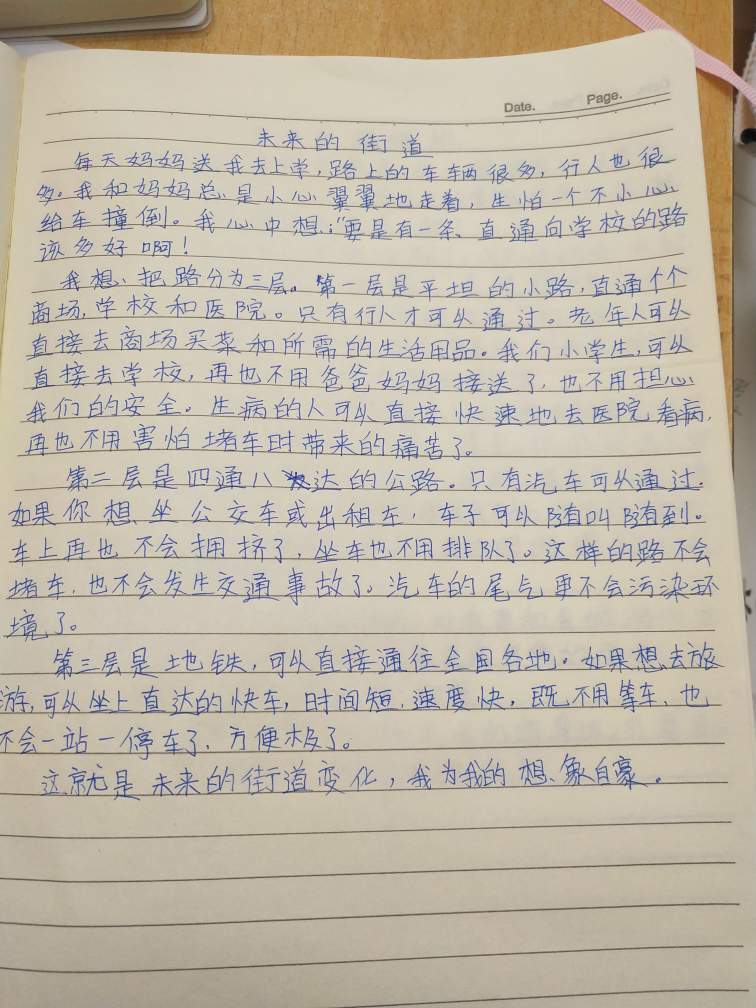 Date. Page.
未来的街道
每天妈妈送我去上学,路上的车辆很多,行人也很
多。我和妈妈总是小心翼翼地走着,生怕一个不小心
给车撞倒。我心中想:“要是有一条直通向学校的路
该多好啊!
我想、把路分为三层。第一层是平坦的小路,直通个个
商场,学校和医院。只有行人才可以通过。老年人可以
直接去商场买菜和所需的生活用品。我们小学生,可以
直接去学校,再也不用爸爸妈妈接送了,也不用担心
我们的安全。生病的人可以直接快速地去医院看病,
再也不用害怕堵车时带来的痛苦了。
第二层是四通八达的公路。只有汽车可以通过.
如果你想坐公交车或出租车,车子可以随叫随到。
车上再也不会拥挤了,坐车也不用排队了。这样的路不会
堵车,也不会发生交通事故了。汽车的尾气更不会污染环
境了。
第三层是地铁,可以直接通往全国各地。如果想去旅
游,可以坐上直达的快车,时间短,速度快,既不用等车、也
不会一站一停车了、方便极了。
这就是未来的街道变化,我为我的想象自豪。